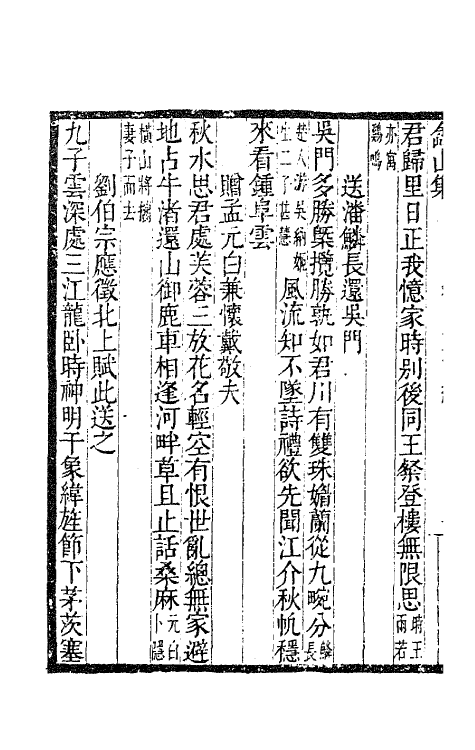 山集
君歸里日正我憶家時別後同王粲登樓無限思時王雨若
亦寓鷄鳴
送潘麟長還吳門
吳門多勝槩攬勝孰如君川有雙珠媚蘭從九畹分麟長
楚人游吳納姬生二子甚慧風流知不墜詩禮欲先聞江介秋帆穩
來看鍾阜雲
贈孟元白兼懷戴敬夫
秋水思君處芙蓉三放花名輕空有恨世亂總無家避
地占牛渚還山御鹿車相逢河畔草且止話桑麻元白卜隱
橫山將攜妻子而去
劉伯宗應徵北上賦此送之
九子雲深處三江龍卧時神明干象緯旌節下茅茨塞